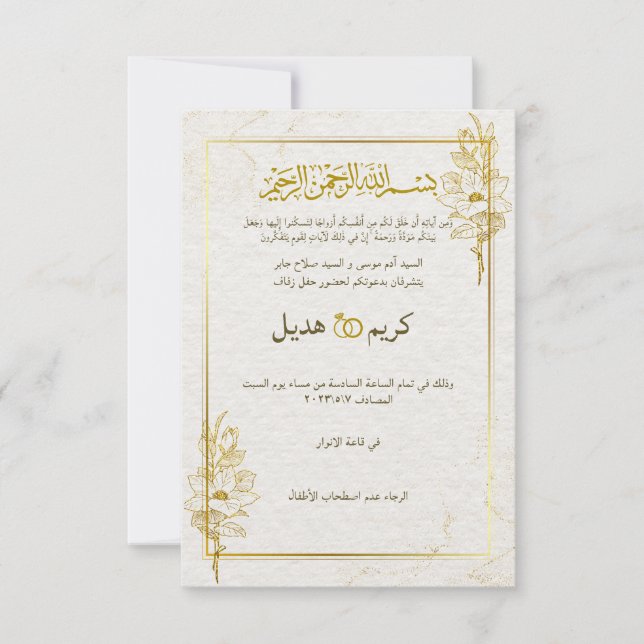 بسم الله الرحمن الرحيم
وَمِن آياتِهِ أَن خَلَقَ لَكُم مِن أَنفُسِكُم أَزواجًا لِتَسكُنوا إِلَيها وَجَعَلَ
بَينَكُم مَوَدَّةً وَرَحمَةً إِنَّ في ذلِكَ لَآياتٍ لِقَومٍ يَتَفَكَّرونَ
السيد آدم موسى و السيد صلاح جابر
يتشرفان بدعوتكم لحضور حفل زفاف
كريم هديل
وذلك في تمام الساعة السادسة من مساء يوم السبت
المصادف ٢٠٢٣\٥\٧
في قاعة الانوار
الرجاء عدم اصطحاب الأطفال